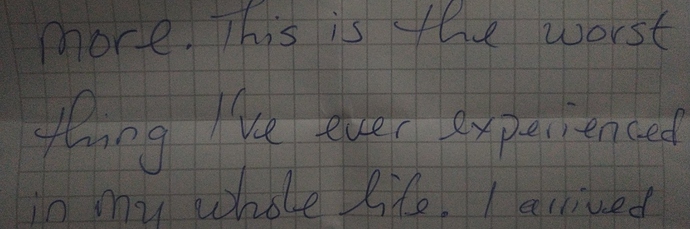 more. This is the worst
thing I've ever experienced
in my whole life. I arrived